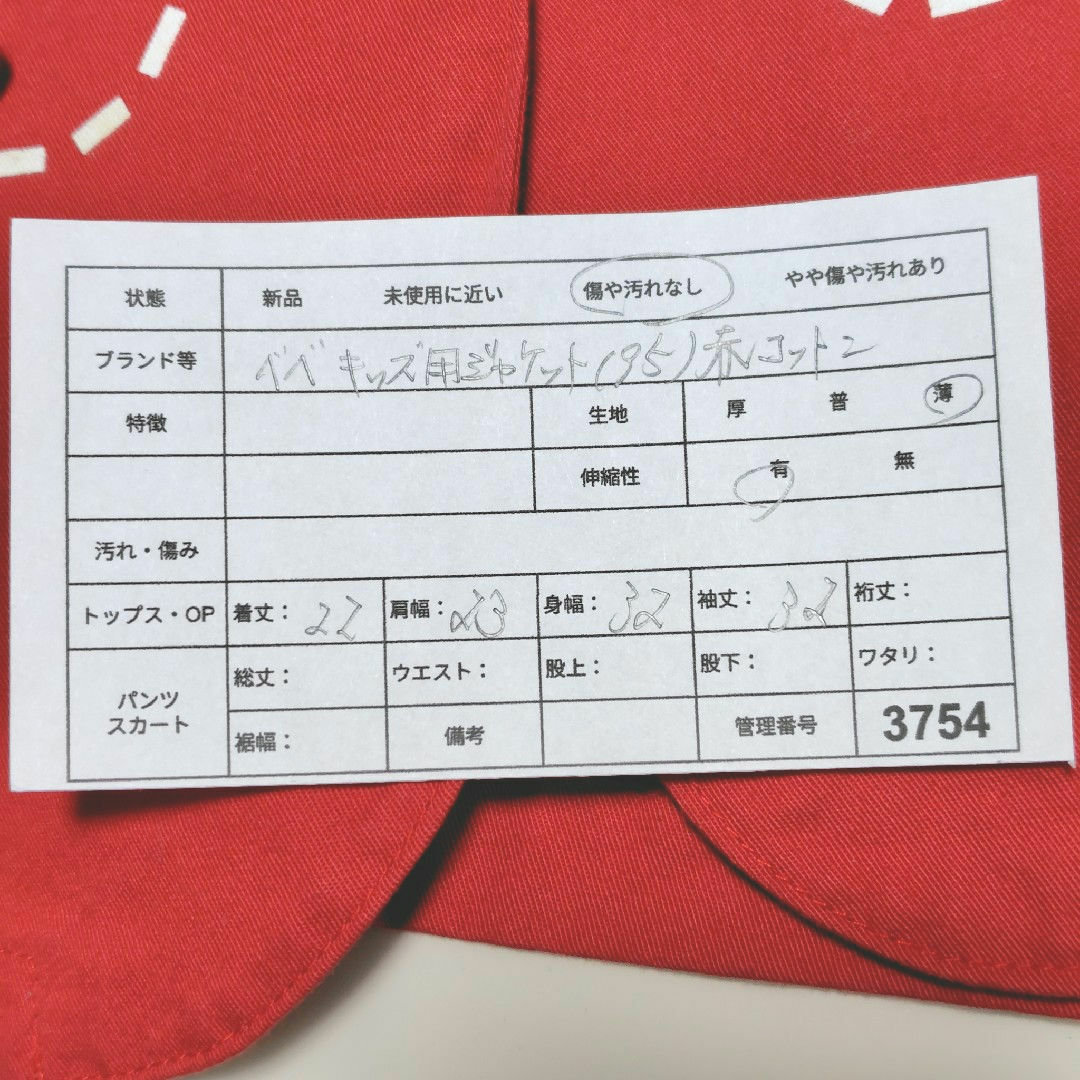 状態 新品 未使用に近い 傷や汚れなし やや傷や汚れあり
ブランド等 べべ キッズ用ジャケット(95)赤 コットン
特徴 生地 厚 普 薄
伸縮性 有 無
汚れ・傷み
トップス・OP 着丈: 肩幅: 23 身幅: 32 袖丈: 32 裄丈:
パンツ スカート 総丈: ウエスト: 股上: 股下: ワタリ:
裾幅: 備考 管理番号 3754